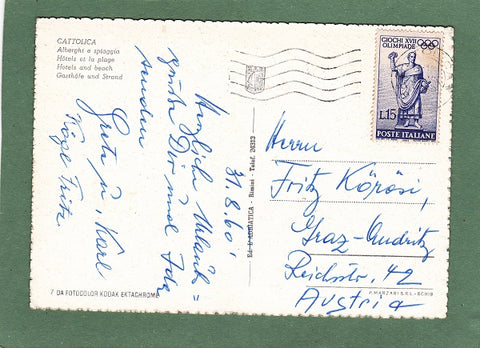 CATTOLICA
Alberghi e spiaggia
Hôtels et la plage
Hotels and beach
Gasthöfe und Strand
31.8.60
Herzliche Urlaubs=
grüße Dir und Ida
senden
Grete u. Karl
Fritz
7 DA FOTOCOLOR KODAK EKTACHROME
Ed. L'ADRIATICA - Rimini - Telef. 26333
GIOCHI XVII
OLIMPIADE
L.15
POSTE ITALIANE
Herrn
Fritz Körösi,
Graz-Andritz
Reichsstr. 42
Austria
P. MARZARI S.R.L. - SCHIO